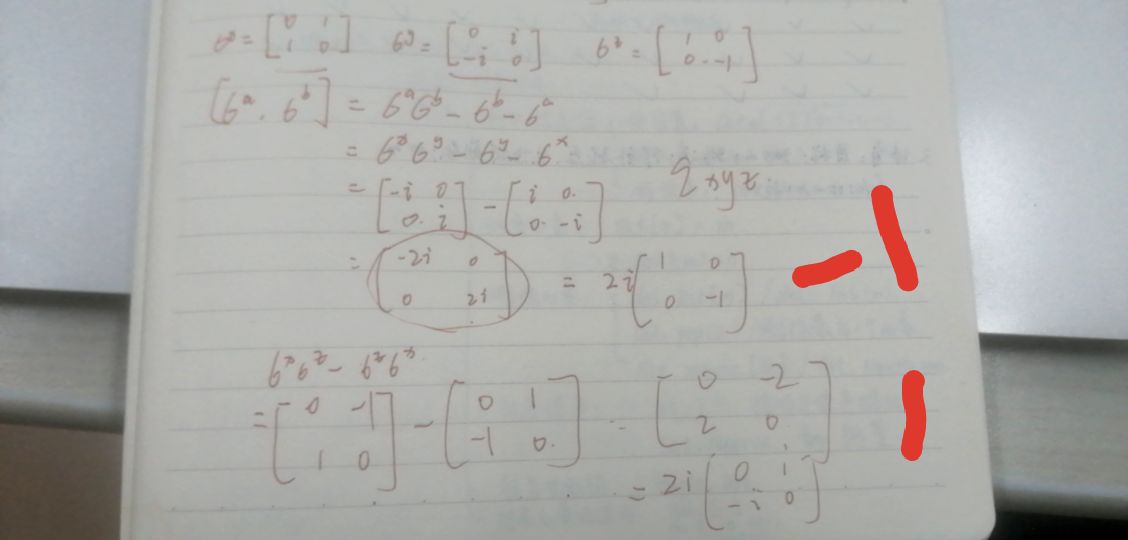 σˣ = [0 1; 1 0] σʸ = [0 i; -i 0] σᶻ = [1 0; 0 -1]
[σᵃ, σᵇ] = σᵃσᵇ - σᵇ - σᵃ
= σˣσʸ - σʸ - σˣ
= [-i 0; 0 i] - [i 0; 0 -i] xyz
= [-2i 0; 0 2i] = 2i [1 0; 0 -1] -1
σˣσᶻ - σᶻσˣ
= [0 -1; 1 0] - [0 1; -1 0] = [0 -2; 2 0] 1
= 2i [0 i; -i 0]